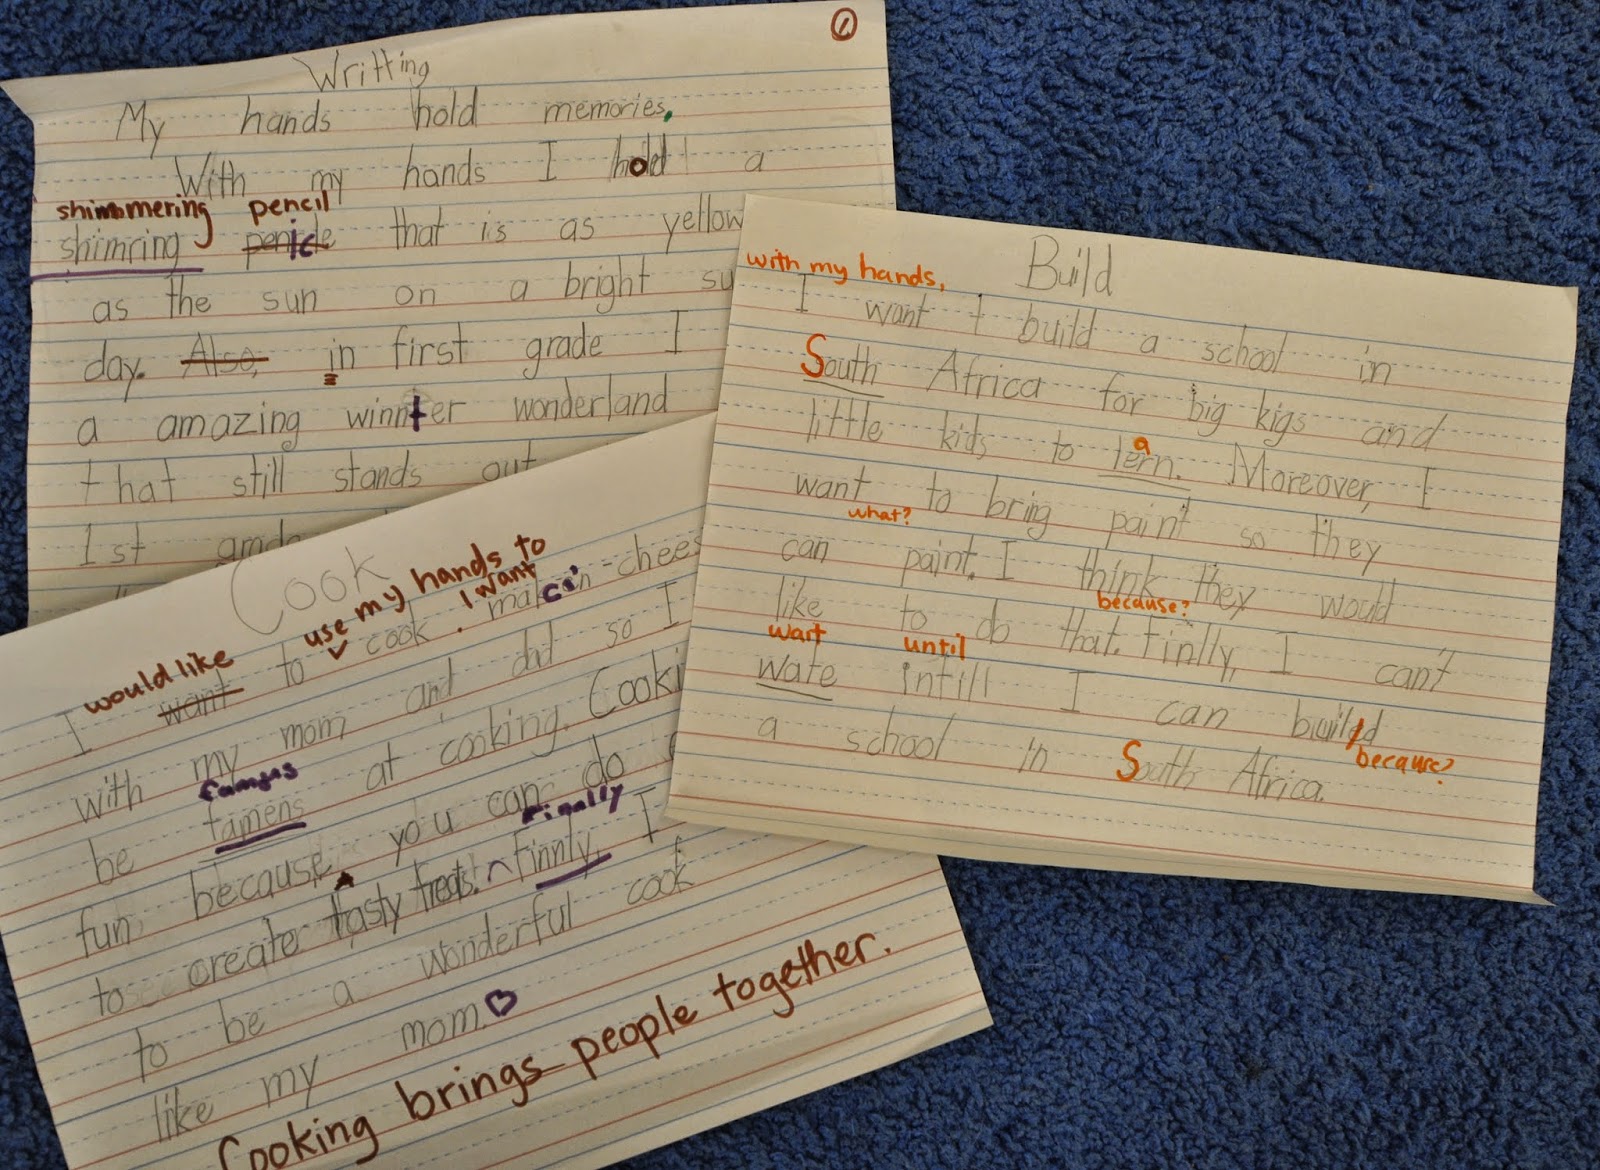 Writting
My hands hold memories.
With my hands I hold a
shimmering pencil
shimring penicle that is as yellow
as the sun on a bright su
day. Also, in first grade I
a amazing winnter wonderland
that still stands out
1st grade
Build
with my hands,
I want t build a school in
South Africa for big kigs and
little kids to lern. Moreover, I
a
want to bring paint so they
what?
can paint. I think they would
because?
like to do that. Finlly, I can't
wait until
wate intill I can build
a school in South Africa.
because?
Cook
use my hands to
I want
would like
I want to cook. mac n-chees
with my mom and dat so I
famous
be famens at cooking. Cooki
fun because you can do
Finally
to creater tasty treats. Finnly, I
to be a wonderful cook
like my mom.
Cooking brings people together.